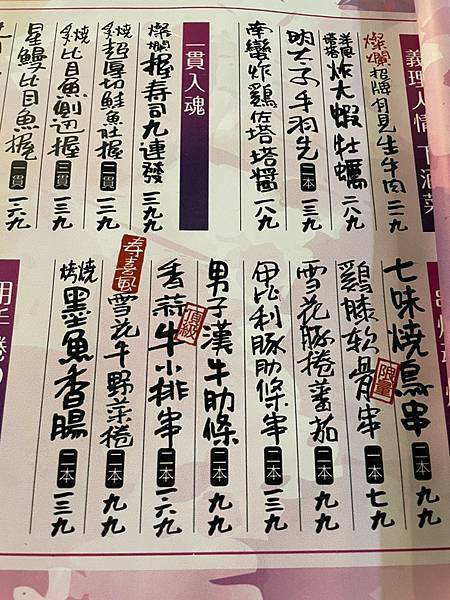 義理人情 下酒菜
燦爛招牌有見生牛肉 二一九
炸大蝦牡蠣 二八九
明太子手羽先 二本 一三九
南蠻炸雞佐塔塔醬 一八九
一貫入魂
燦爛握壽司九連發 三九九
炙燒超厚切鮭魚肚握 二貫 一二九
炙燒比目魚側邊握 二貫 一三九
星鰻比目魚握 一貫 一六九
七味燒鳥串 二本 九九
雞膝軟骨串 限量 一本 七九
雪花豚捲蕃茄 二本 九九
伊比利豚肋條串 二本 一三九
男子漢牛肋條 頂級 二本 九九
香蒜牛小排串 二本 一六九
壽喜風雪花牛野菜捲 二本 九九
燒烤墨魚香腸 二本 一三九